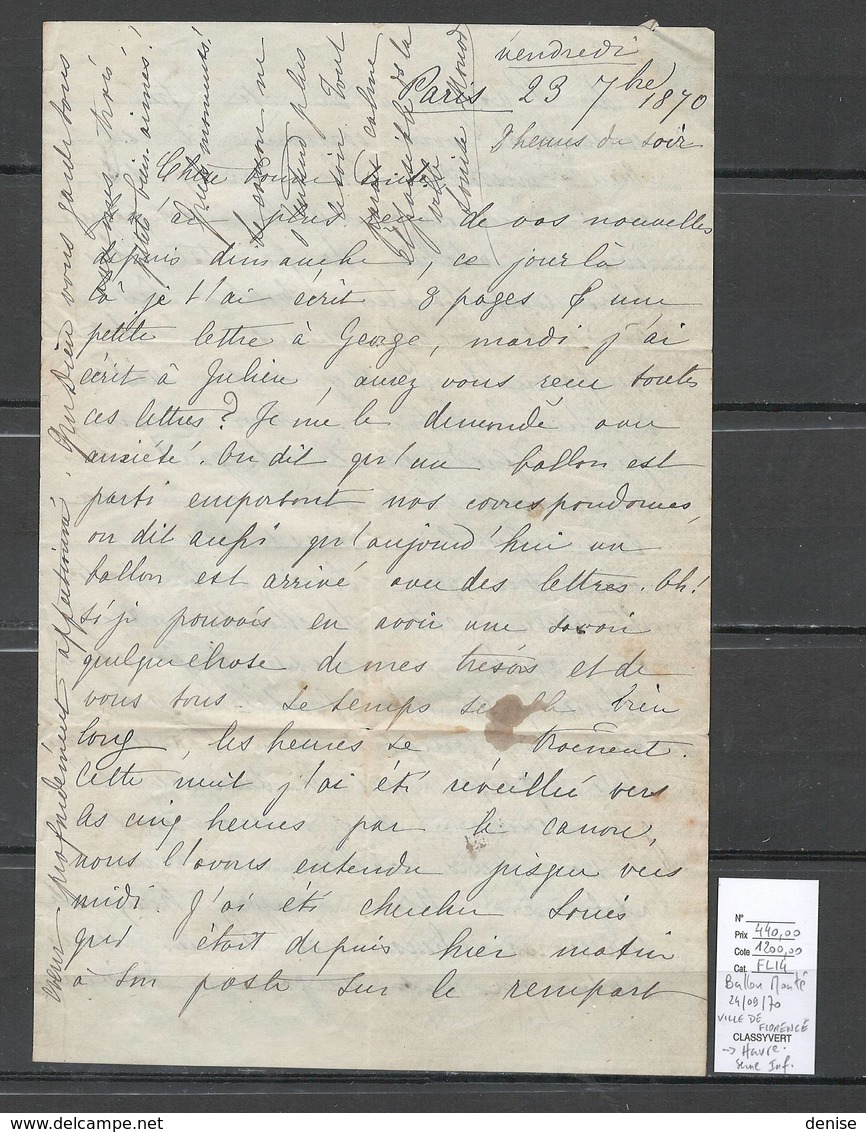 vendredi
Paris 23 7bre 1870
8 heures du soir
Chère bonne
n'ai plus reçu de vos nouvelles
depuis dimanche, ce jour là
là je t'ai écrit 8 pages & une
petite lettre à George, mardi j'ai
écrit à Julien, aurez vous reçu toutes
ces lettres? Je me le demande avec
anxiété. On dit qu'un ballon est
parti emportant nos correspondances,
on dit aussi qu'aujourd'hui un
ballon est arrivé avec des lettres. Oh!
si je pouvais en avoir une savoir
quelquechose de mes trésors et de
vous tous - Le temps semble bien
long, les heures se traînent.
Cette nuit j'ai été réveillée vers
les cinq heures par le canon,
nous l'avons entendu jusque vers
midi. J'ai été chercher Louis
qui était depuis hier matin
à son poste sur le rempart
coeur profondément affectionné. Que Dieu vous garde tous
mes trois
petits bien aimés!
Quels moments!
le canon ne
s'entend plus
ce soir. Tout
paraît calme
de la
N°
Prix 440,00
Cote 1200,00
Cat. FL14
Ballon Monté
24/09/70
VILLE DE
FLORENCE
CLASSYVERT
→ Havre.
Seine Inf.
denise
delcampe.net